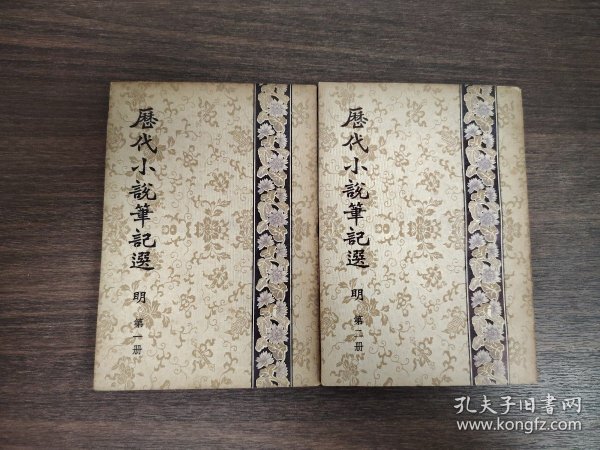 歷代小說筆記選
明
第一册
歷代小說筆記選
明
第二册
孔夫子旧书网
www.kongfz.com